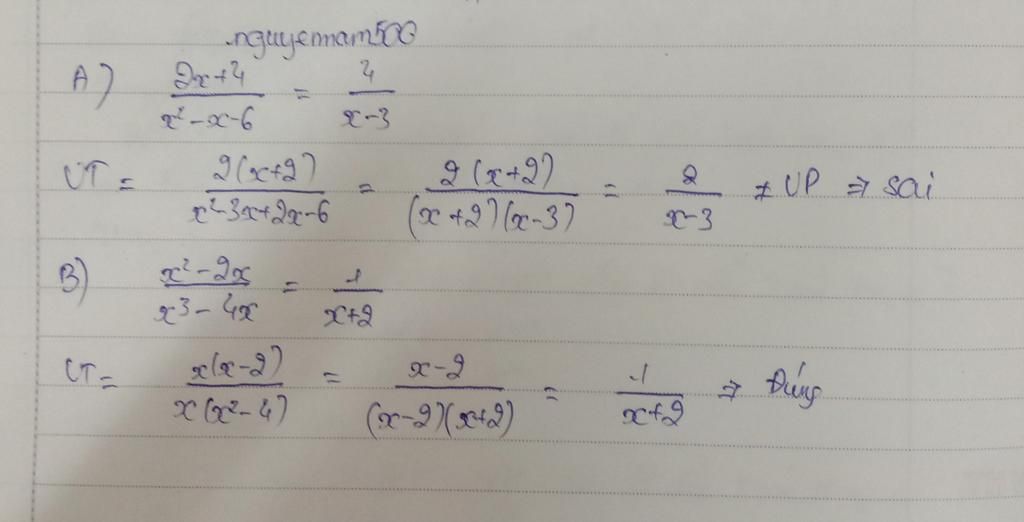 nguyetnam500
A) (2x+4)/(x²-x-6) = 4/(x-3)
VT = 2(x+2)/(x²-3x+2x-6) = 2(x+2)/((x+2)(x-3)) = 2/(x-3) ≠ VP ⇒ sai
B) (x²-2x)/(x³-4x) = 1/(x+2)
VT = x(x-2)/(x(x²-4)) = (x-2)/((x-2)(x+2)) = 1/(x+2) ⇒ Đúng